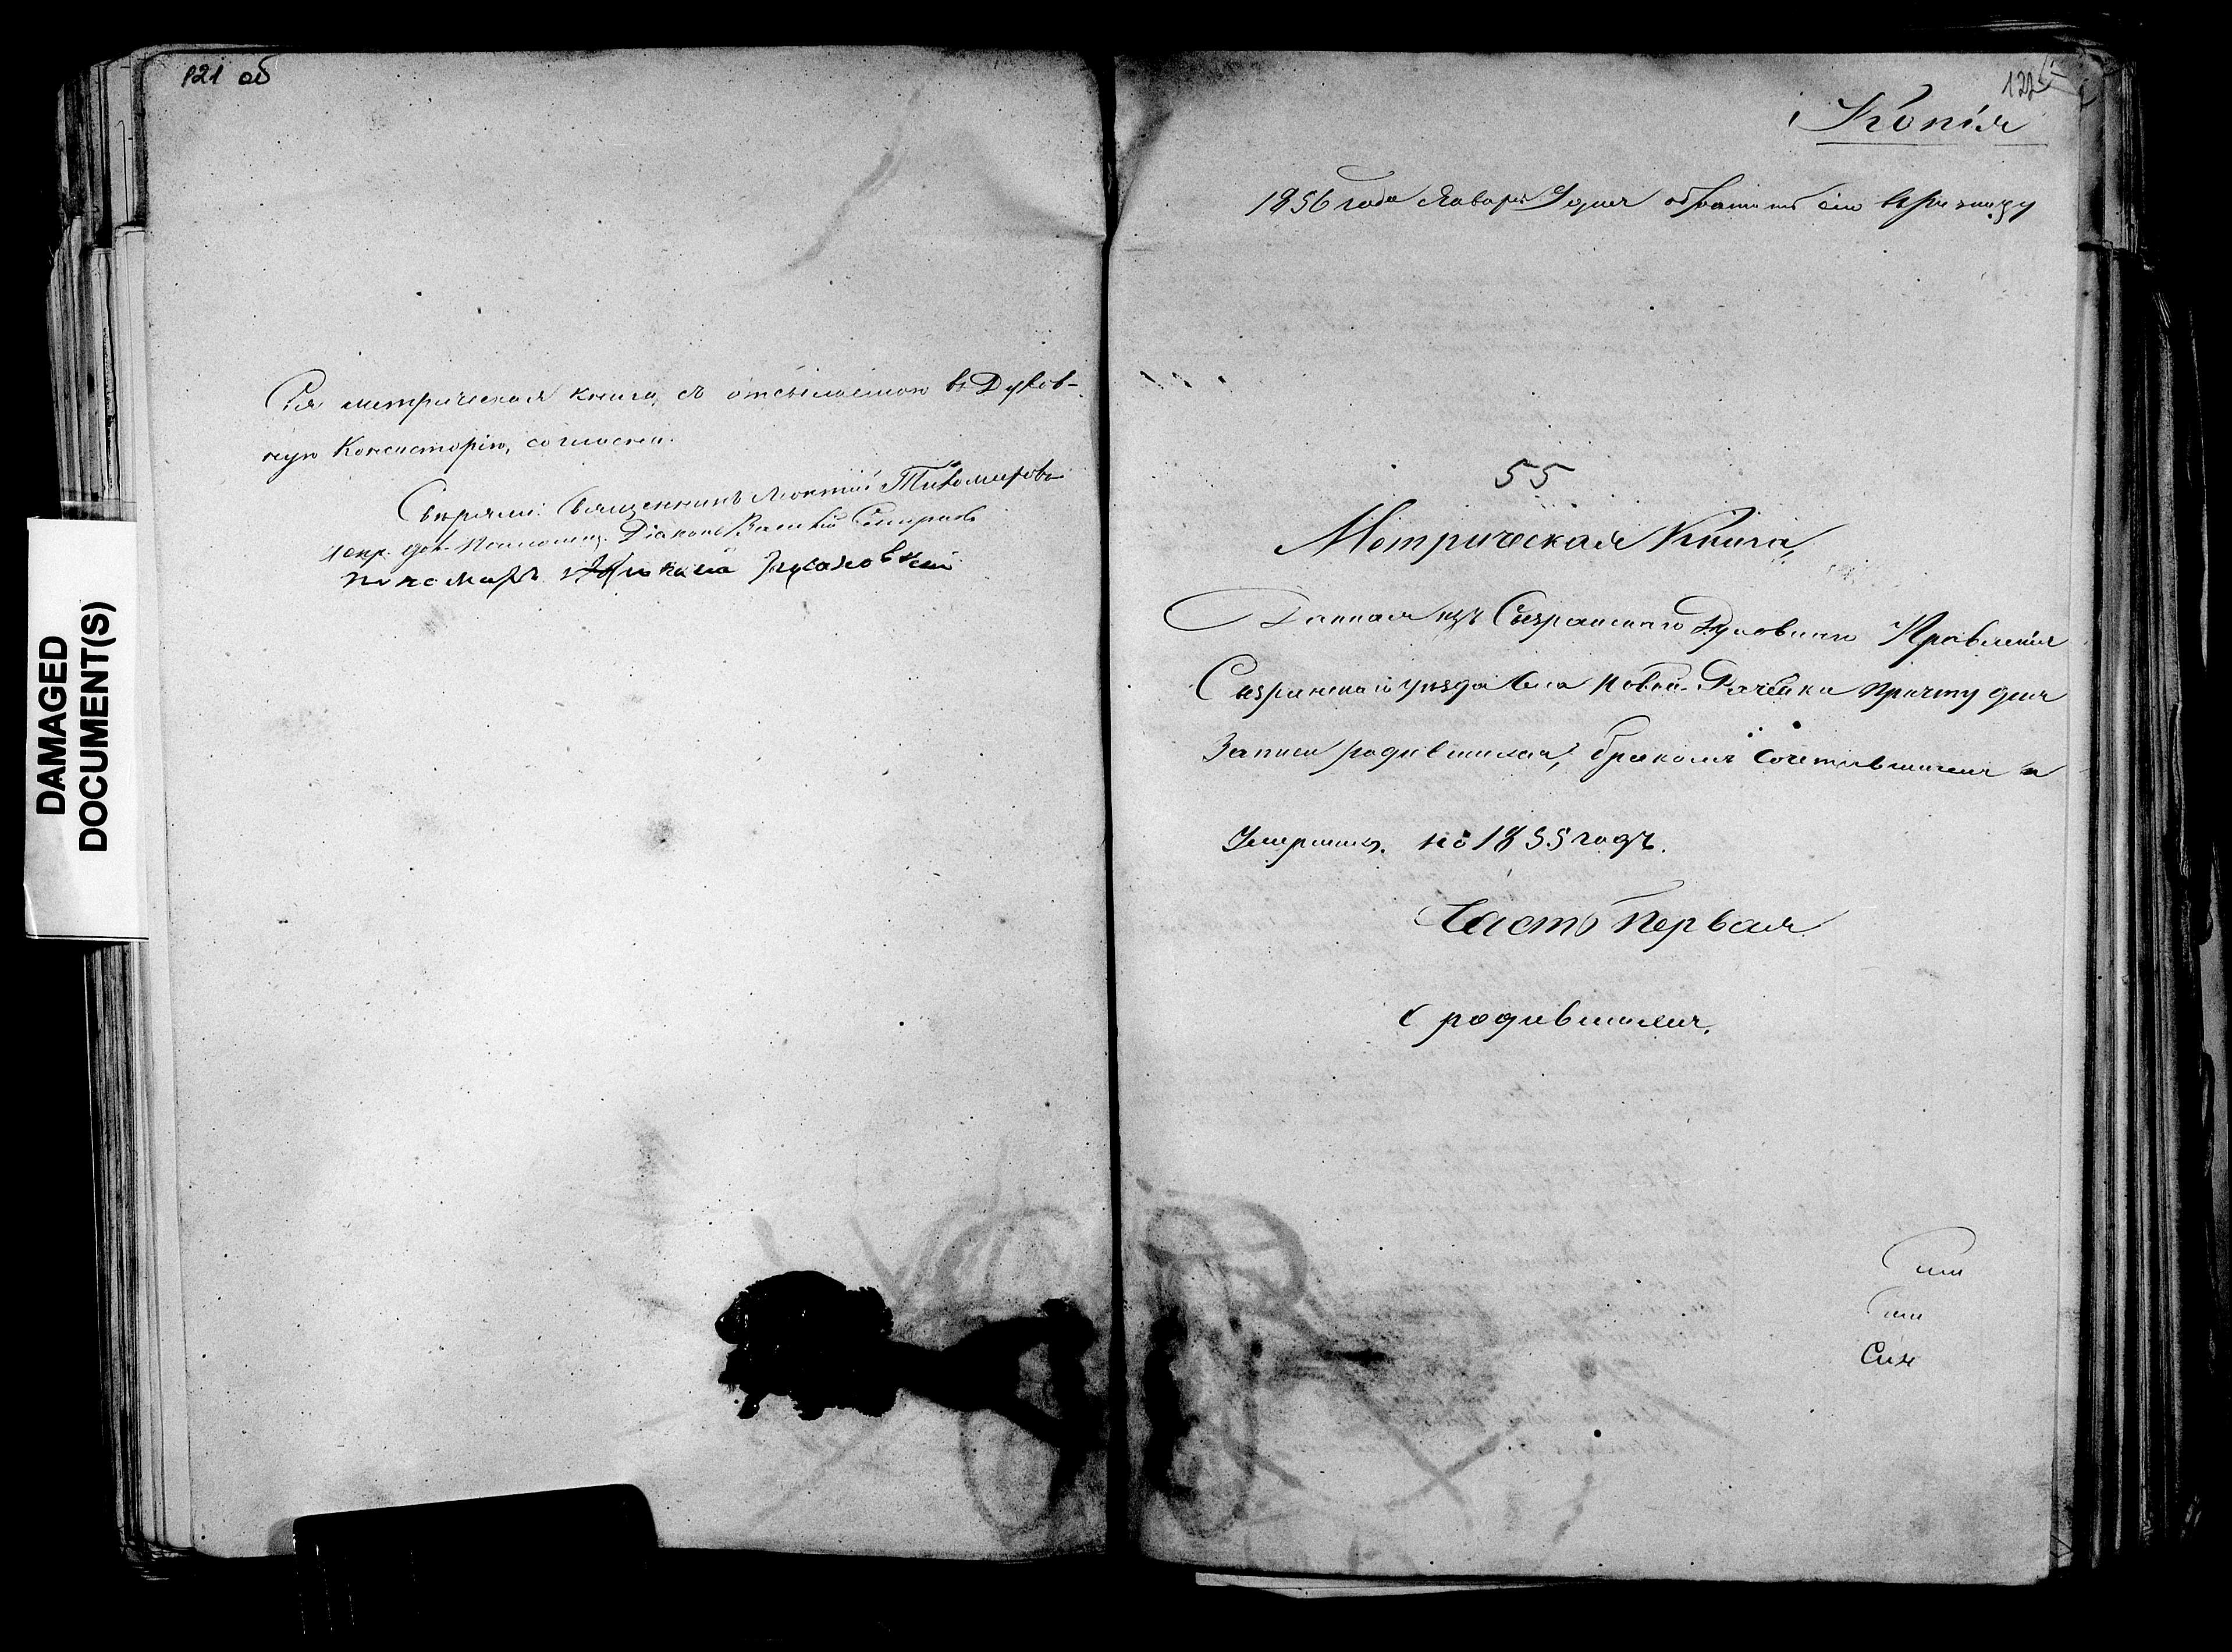 121 об
Сія метрическая книга, съ отсылаемою въ Духов-
ную Консисторію, согласна.
Свѣряли: Священникъ Тихомировъ
Діаконъ Василій Смирновъ
пономарь
DAMAGED
DOCUMENT(S)
122
Копія
1856 года Января 9 дня обратить сію въ ризницу
55
Метрическая Книга,
Данная изъ Сызранскаго Духовнаго Правленія
Сызранскаго уѣзда села Новой-Рачейки причту для
Записи родившихся, бракомъ сочетавшихся и
Умершихъ. на 1855 годъ.
Часть Первая
О родившихся.
Сія